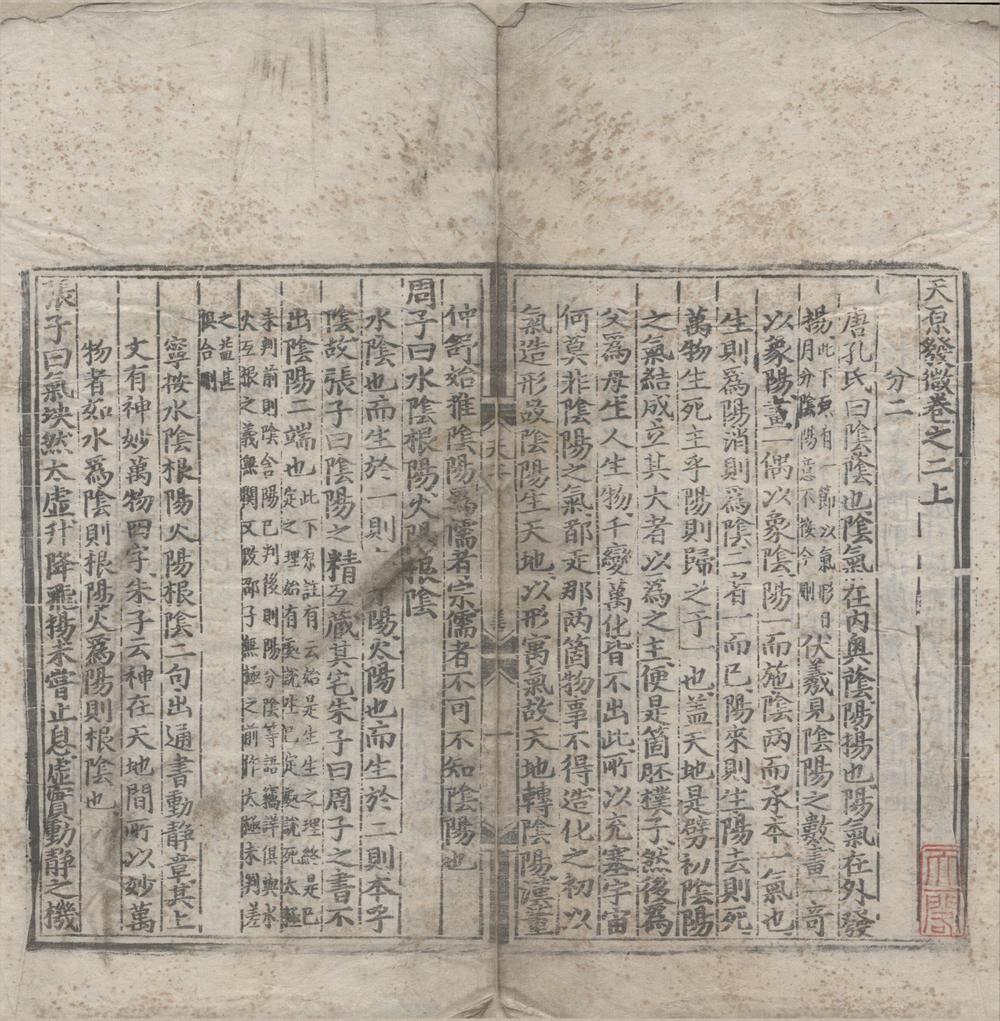 天原發微卷之二上
分二
唐孔氏曰陰蔭也陰氣在內奧蔭陽揚也陽氣在外發
揚此下原有一節以氣形日月分陰陽意不接今刪伏羲見陰陽之數畫一奇
以象陽畫一偶以象陰陽一而施陰兩而承本一氣也
生則爲陽消則爲陰二者一而已陽來則生陽去則死
萬物生死主乎陽則歸之于一也蓋天地是劈初陰陽
之氣結成立其大者以為之主便是箇胚樸子然後為
父爲母生人生物千變萬化皆不出此所以充塞宇宙
何莫非陰陽之氣都走那兩箇物事不得造化之初以
氣造形故陰陽生天地以形寓氣故天地轉陰陽漢董
仲舒始推陰陽爲儒者宗儒者不可不知陰陽也
周子曰水陰根陽火陽根陰
水陰也而生於一則陽火陽也而生於二則本乎
陰故張子曰陰陽之精互藏其宅朱子曰周子之書不
出陰陽二端也此下原註有云始是生生之理終是已定之理始有處說生已定處說死太極
未判前則陰含陽已判後則陽分陰等語籠詳俱與水火互根之義無關又段邵子無極之前作太極未判差
之甚俱合刪
寧按水陰根陽火陽根陰二句出通書動靜章其上
文有神妙萬物四字朱子云神在天地間所以妙萬
物者如水爲陰則根陽火爲陽則根陰也
張子曰氣坱然太虛升降飛揚未嘗止息虛實動靜之機